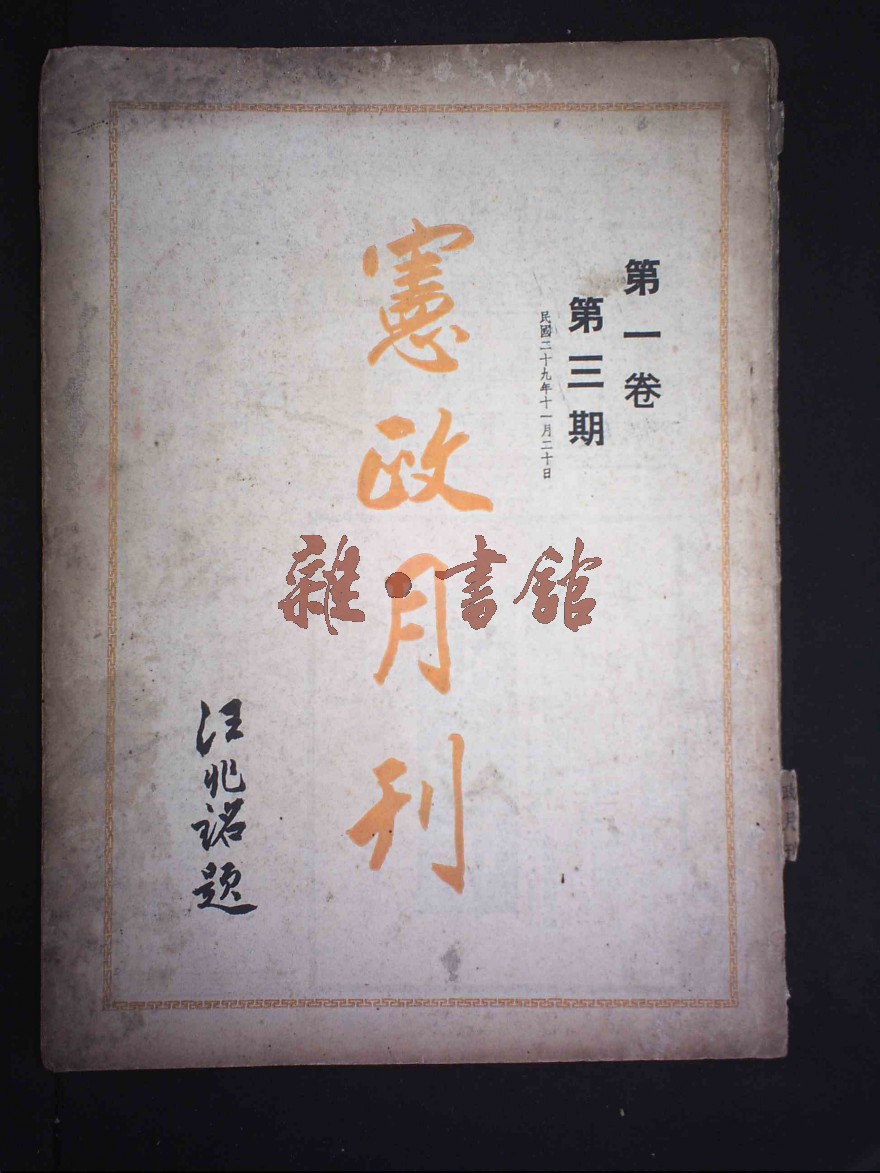 第一卷
第三期
民國二十九年十一月二十日
憲政月刊
汪兆銘題
雜·書館
政月刊